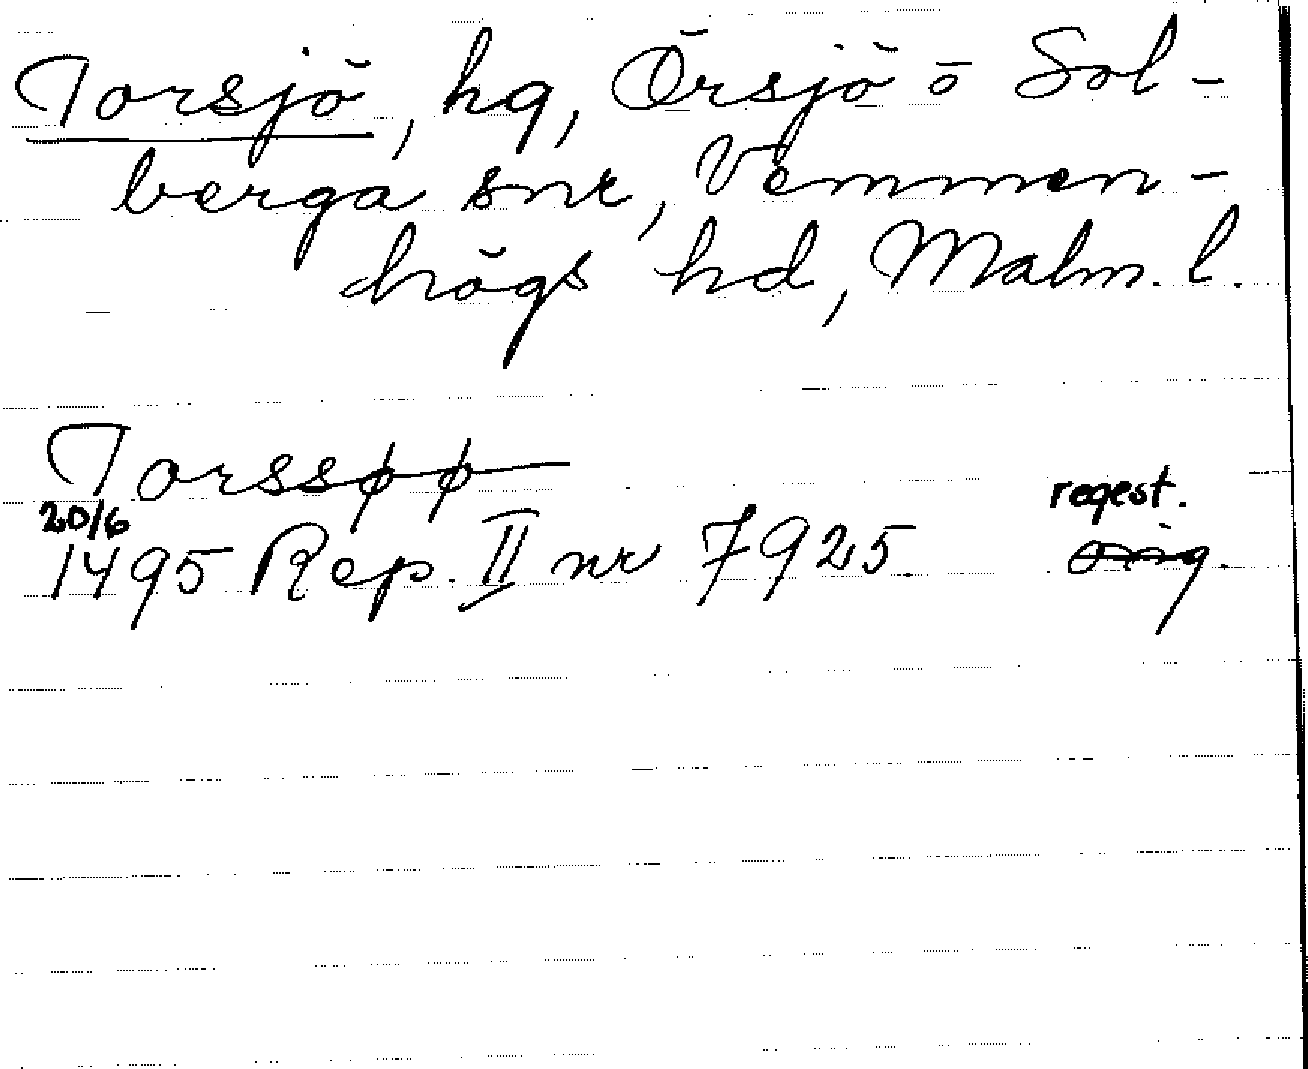 Torsjö, hg, Örsjö o Sol-
berga snr, Vemmen-
högs hd, Malm. l.
Torssøø
20/6 regest.
1495 Rep. II nr 7925 orig.